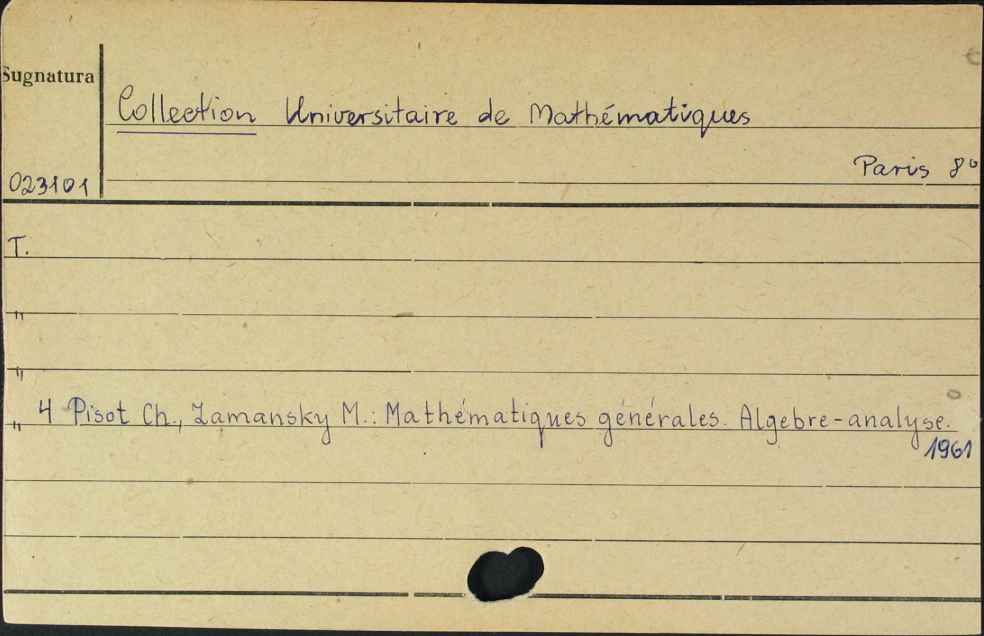 Sugnatura
Collection Universitaire de Mathématiques
Paris 8º
023101
T.
"
"
" 4 Pisot Ch., Zamansky M.: Mathématiques générales. Algebre-analyse.
1961